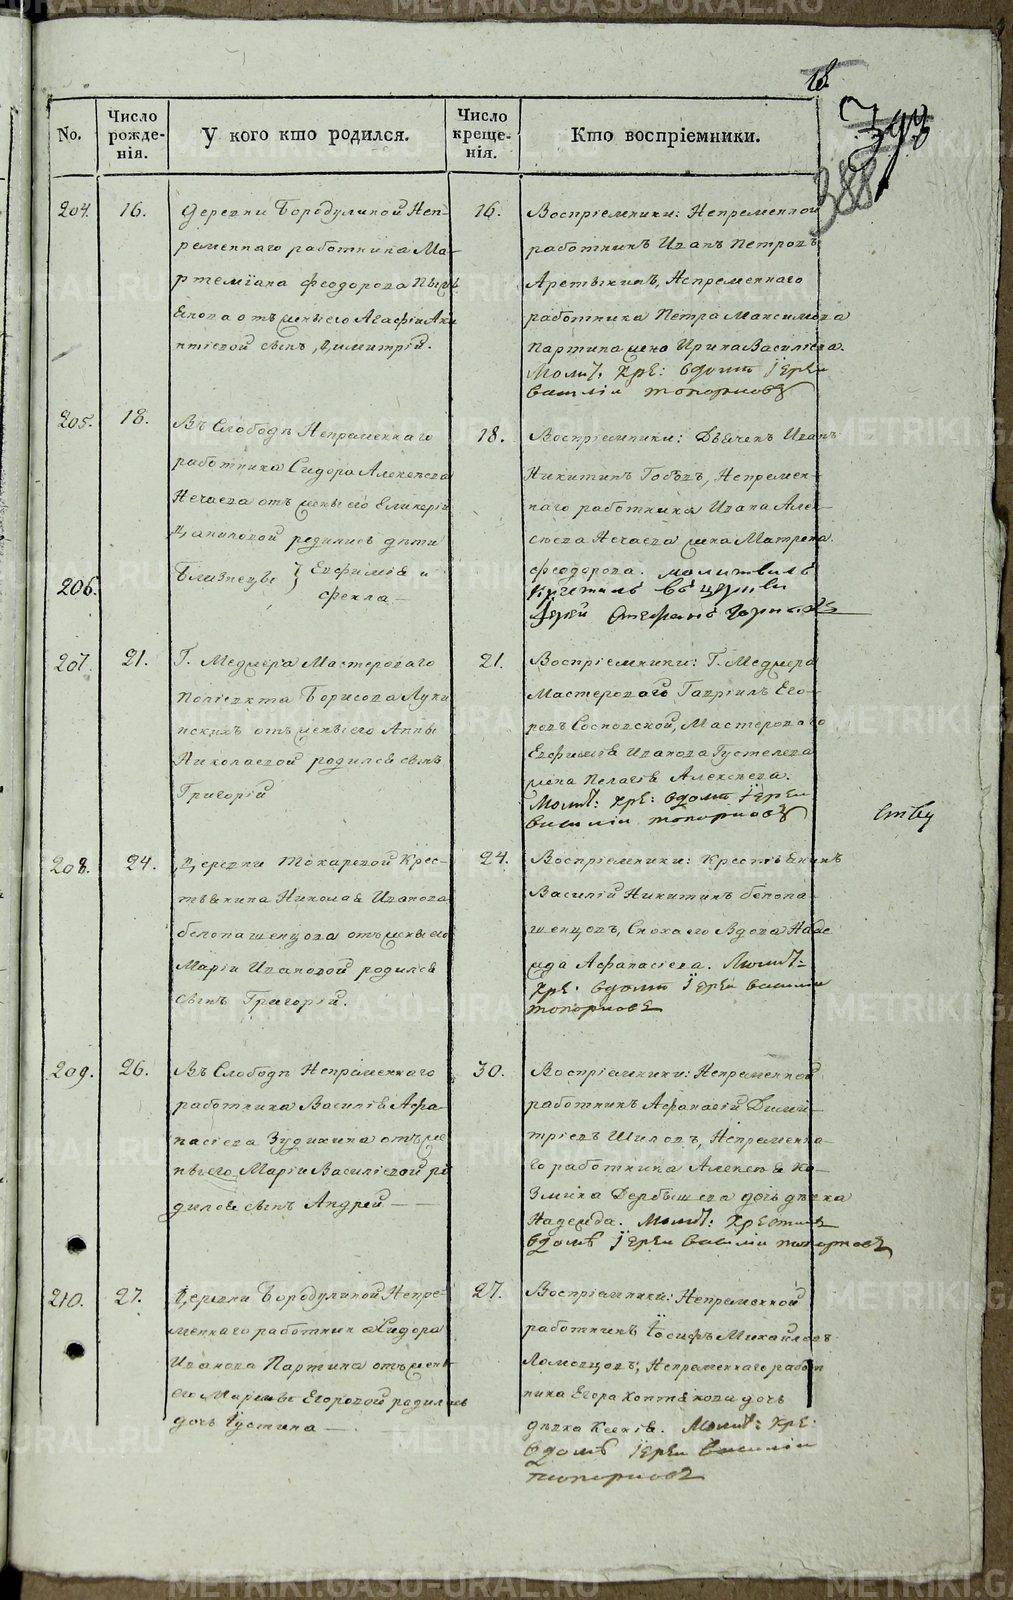 18.
399
388
No.
Число рожденія.
У кого кто родился.
Число крещенія.
Кто воспріемники.
204.
16.
Деревни Бородулиной Неп-
ременнаго работника Ма-
ртеміана Феодорова
отъ жены его Агафіи Аки
нтіевой сынъ Димитрій.
16.
Воспріемники: Непременной
работникъ Иванъ Петровъ
Аретыкинъ, Непременнаго
работника Петра Максимова
Партина жена Ирина Василіева.
Молит. Кре: въ домѣ Іерей
Василій Топорковъ
205.
18.
Въ Слободѣ Непременнаго
работника Сидора Алексѣева
Нечаева отъ жены его Гликеріи
Даниловой родились дѣти
206.
близнецы } Евфимія и
Фекла
18.
Воспріемники: Дьячекъ Иванъ
Никитинъ, Непремен-
наго работника Ивана Алек-
сѣева Нечаева жена Матрена
Феодорова. молитвилъ
Крестилъ въ церкви
Іерей Стефанъ Горныхъ
207.
21.
Г. Меджера Мастероваго
Поліевкта Борисова Луки
нскихъ отъ жены его Анны
Николаевой родился сынъ
Григорій
21.
Воспріемники: Г. Меджера
Мастероваго Гавріилъ Его-
ровъ Сосновской, Мастероваго
Евфимія Иванова Густелева
жена Пелагія Алексѣева.
Молит: кре: въ домѣ Іерей
Василій Топорковъ
208.
24.
Деревни Токаревой Крес-
тьянина Николая Иванова
Белопашенцова отъ жены его
Маріи Ивановой родился
сынъ Григорій.
24.
Воспріемники: Крестьянинъ
Василій Никитинъ Белопа-
шенцовъ, Сноха его Вдова Наде
жда Афанасіева. Молит-
Кре. въ домѣ Іерей Василій
Топорковъ
209.
26.
Въ Слободѣ Непременнаго
работника Василія Афа-
насіева Зудихина отъ же
ны его Маріи Василіевой ро
дился сынъ Андрей
30.
Воспріемники: Непременной
работникъ Афанасій Дими-
тріевъ Шиловъ, Непременна-
го работника Алексѣя Ко-
змина Дербышева дочь дѣвка
Надежда. Молит: Крестилъ
въ домѣ Іерей Василій Топорковъ
210.
27.
Деревни Бородулиной Непре-
меннаго работника Сидора
Иванова Партина отъ жены
его Марѳы Егоровой родилась
дочь Іустина
27.
Воспріемники: Непременной
работникъ Іосифъ Михайловъ
Ломовцовъ, Непременнаго работ
ника Егора Коптякова дочь
дѣвка Ксенія. Молит: Кре:
въ домѣ Іерей Василій
Топорковъ
METRIKI.GASO-URAL.RU